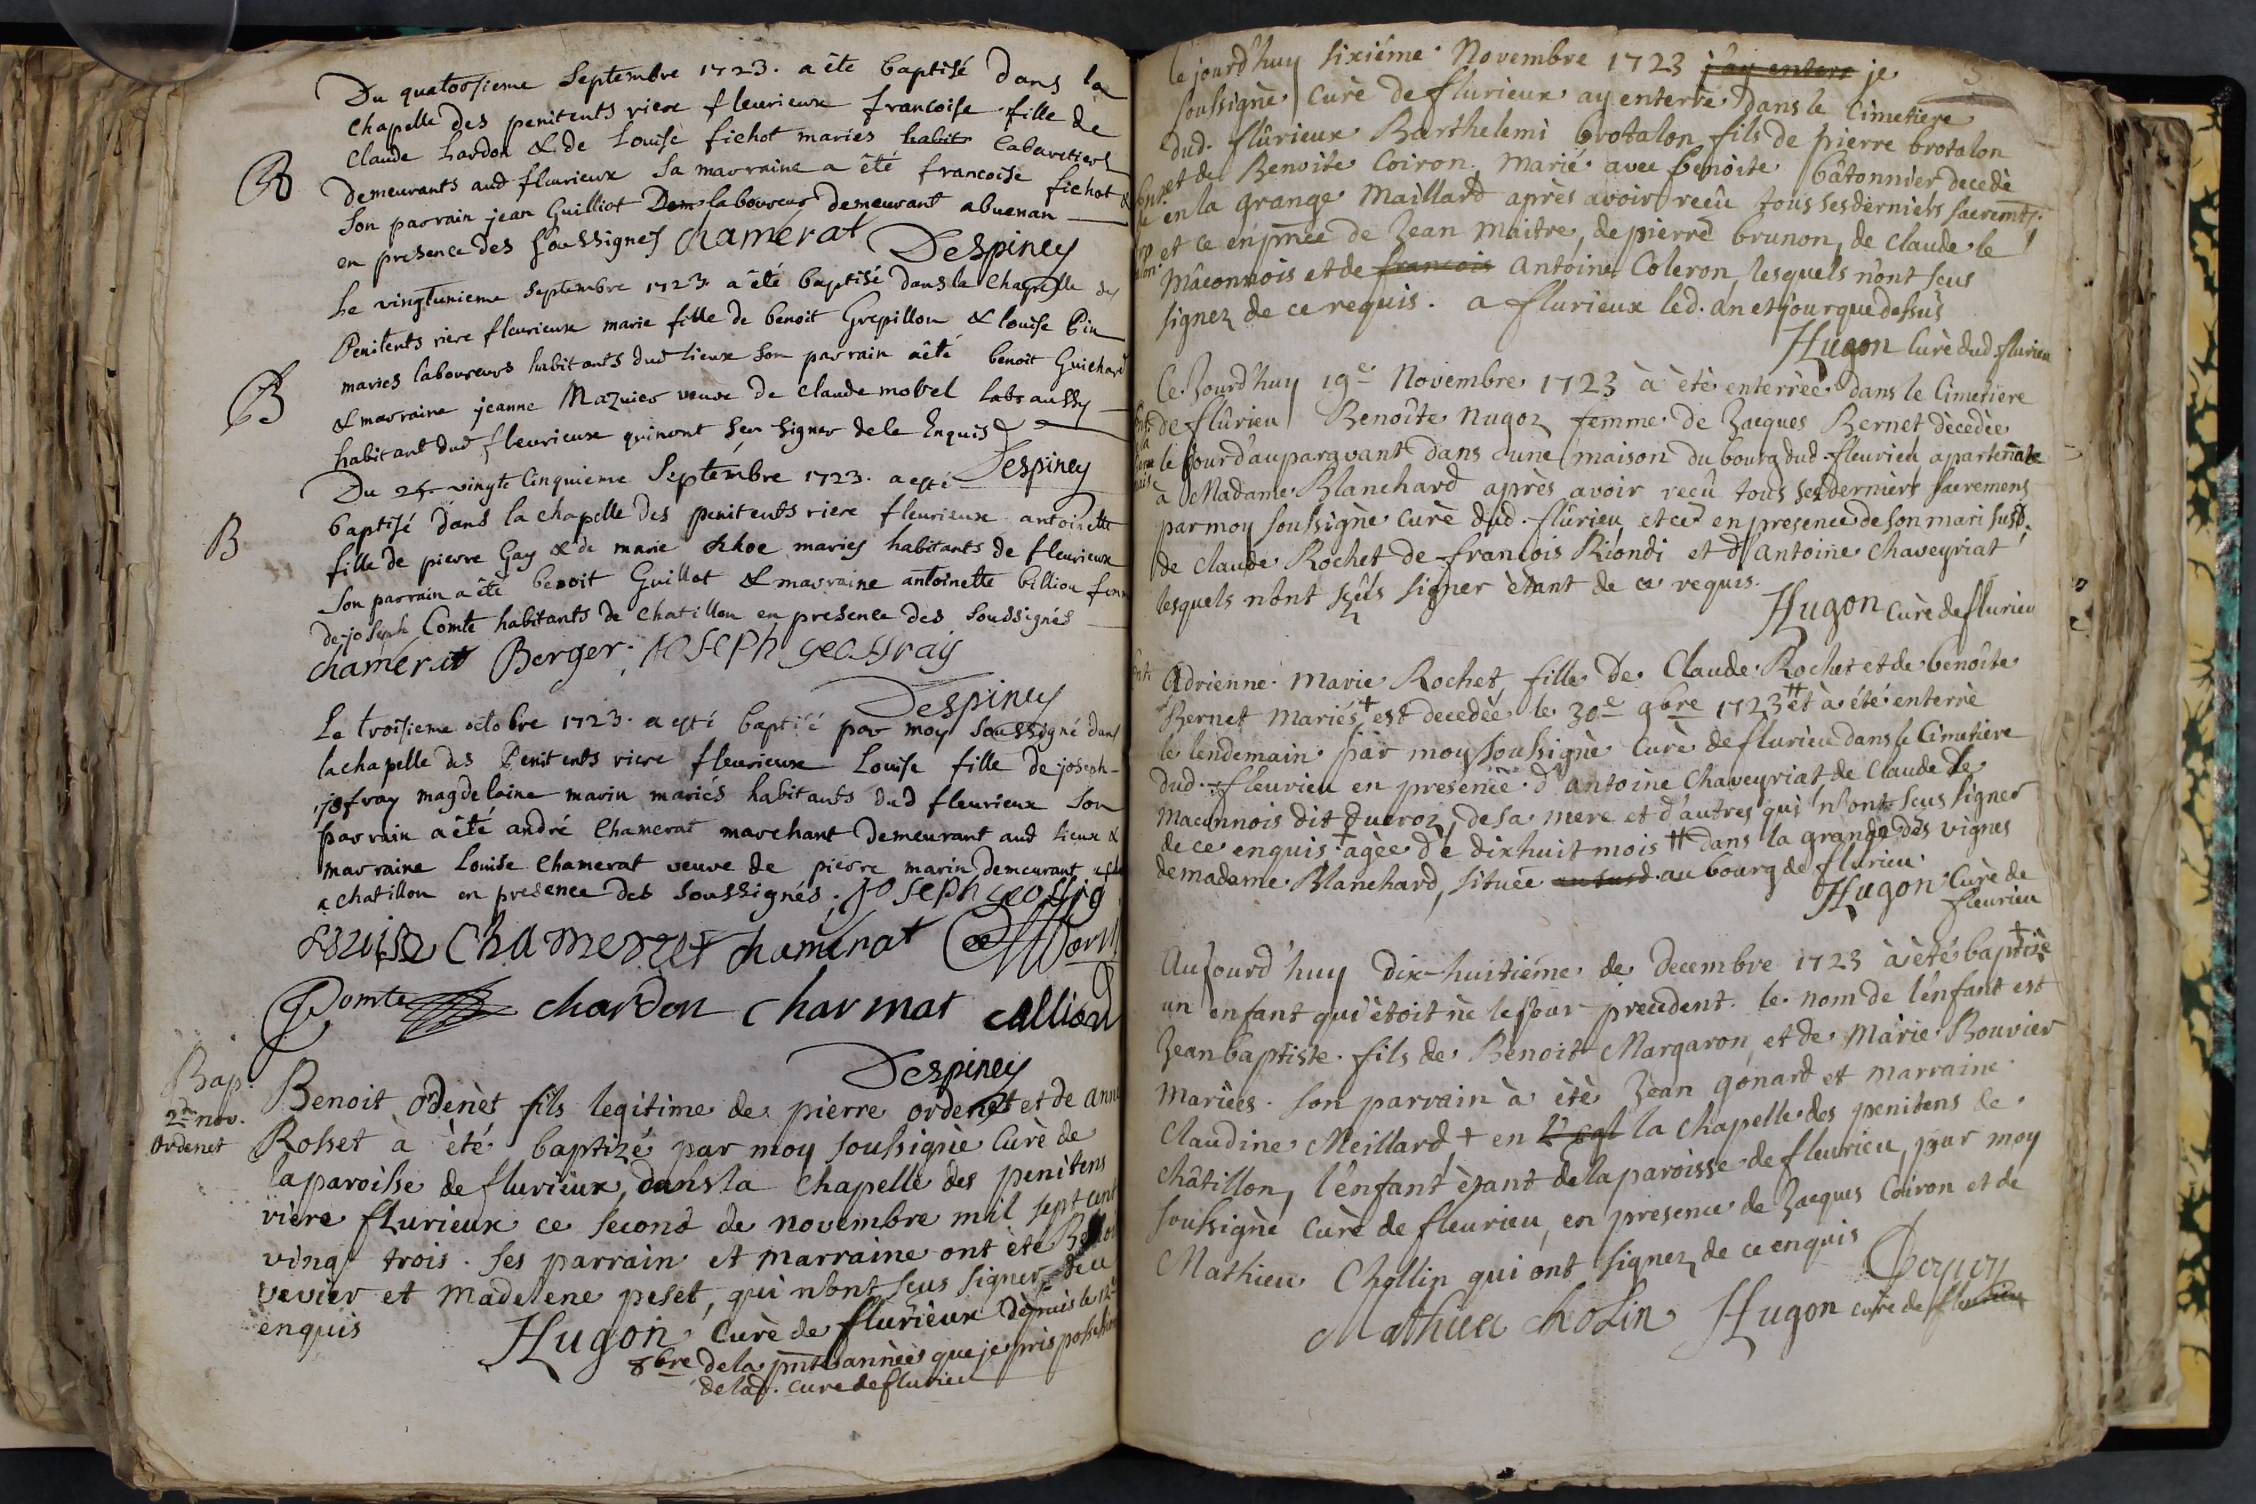 Du quatorsieme Septembre 1723. a ête baptisé dans la
chapelle des penitents riere fleurieux francoise fille de
claude hardon & de Louise fichot mariés habit cabaretiers
B
demeurants aud fleurieux sa marraine a êté francoise fichot &
son parrain jean Guilliot Dem laboureur demeurant abuenan
en presence des soussignes chamérat Despiney
Le vingtunieme septembre 1723 a êté baptisé dans la chapelle des
Penitents riere fleurieux marie fille de benoit Grepillon & louise
mariés laboureurs habitants dud lieux son parrain aêté benoit Guichard
B
& marraine jeanne Mazuier veuve de claude morel labr aussy
habitant dud fleurieux qui nont sceu signer de le Enquis
Despiney
Du 25e vingte Cinquieme Septémbre 1723. a esté
B
baptisé dans la chapelle des penitents riere fleurieux antoinette
fille de pierre Gay & de marie Rhoe mariés habitants de fleurieux
son parrain a êté benoit Guillot & marraine antoinette billion
de joseph Comte habitants de chatillon en presence des soussignés
chamérat Berger JOSEPH geoffray
Despiney
Le troisieme octobre 1723. a esté baptisé par moy soussigné dans
la chapelle des Penitents riere fleurieux Louise fille de joseph
jofray magdelaine marin mariés habitants dud fleurieux son
parrain a êté andré Chamerat marchant demeurant aud lieux &
marraine Louise Chamerat veuve de pierre marin demeurant
a chatillon en presence des soussignés. JOSEPH
Louise Chameret chamérat
Comte chardon charmat
Despiney
Bap.
2de nov.
Ordenet
Benoit Ordenèt fils legitime de pierre ordenet et de anne
Rosset à èté baptizé par moy soussignèe Curè de
la paroisse de flurieux, dans la chapelle des penitens
riere flurieux ce second de novembre mil sept cent
vingt trois. ses parrain et marraine ont ètè
vevier et madelene peset, qui n'ont sçus signer, de ce
enquis
Hugon, curè de flurieux depuis le 12e
8bre de la pnte annèes que je pris possession
de lad. cure de flurieu
le jourd'huy sixième Novembre 1723 j'ay enterè je
soussignè Curè de flurieux ay enterrè dans le Cimetiere
dud. flurieux Barthelemi brotalon fils de pierre brotalon
et de Benoite Coiron, mariè avec benoite bâtonnier decedè
en la grange Maillard après avoir reçû tous ses derniers sacremts;
et ce en pnce de Jean maitre, de pierre brunon, de claude le
Mâconnois et de francois Antoine Coleron, lesquels n'ont sçus
signez de ce requis. a flurieux led. an et jour que dessus
Hugon Curè dud. flurieu
Ce Jourd'huy 19e Novembre 1723 à ètè enterrèe dans le Cimetiere
de flûrieu Benoîte nugoz femme de Jacques Bernet dècèdèe
le jour d'auparavant dans une maison du bourg dud. fleurieu apartenante
à Madame Blanchard après avoir reçu tous ses derniers sacremens
par moy soussignè curè dud. flûrieu et ce en presence de son mari susd.
de claude Rochet de francois Riondi et d'Antoine chaveyriat
lesquels n'ont sçûs signer ètant de ce requis.
Hugon Curè de flurieu
Adrienne Marie Rochet fille de Claude Rochet et de benoîte
Bernet Mariés† est decedèe le 30e 9bre 1723 # et à été enterrè
le lendemain par moy soussignè Curè de flurieu dans le Cimetiere
dud. fleurieu en presence d'Antoine Chaveyriat, de Claude le
Maconnois dit Queroz, de sa mere et d'autres qui n'ont sçus signer
de ce enquis. † agèe de dixhuit mois # dans la grange des vignes
de madame Blanchard, située au susd. au bourg de flurieu.
Hugon Curè de
fleurieu
Aujourd'huy dix-huitième de decembre 1723 à été baptisè †
un enfant qui ètoit nè le jour precedent. le nom de l'enfant est
Jean baptiste fils de Benoit Margaron, et de Marie Bouvier
mariées. son parrain à ètè Jean gonard et marraine
Claudine Meillard, † en l'egl la chapelle des penitens de
châtillon, l'enfant ètant de la paroisse de fleurieu, par moy
soussignè Curè de fleurieu, en presence de Jacques Coiron et de
Mathieu Chollin qui ont signez de ce enquis
Mathieu choLin Hugon curè de fleurieu